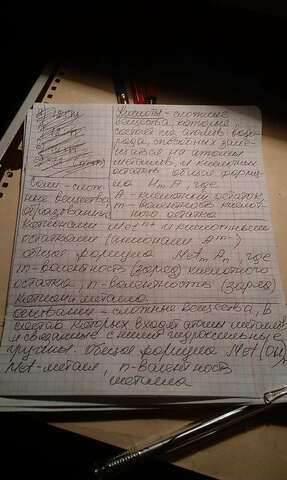 Кислоты - сложные
вещества, которые
состоят из атомов водо-
рода, способных заме-
щаться на атомы
металлов, и кислотных
остатков. общая форму-
ла HmA, где
A - кислотный остаток
m - валентность кислот-
ного остатка
Соли - слож-
ные вещества,
образованные
катионами Met n+ и кислотными
остатками (анионами Am-)
общая формула MetmAn, где
m - валентность (заряд) кислотного
остатка, n - валентность (заряд)
катиона металла.
основания - сложные вещества, в
состав которых входят атомы металлов
и связанные с ними гидроксильные
группы. общая формула Met(OH)
Met - металл, n - валентность
металла